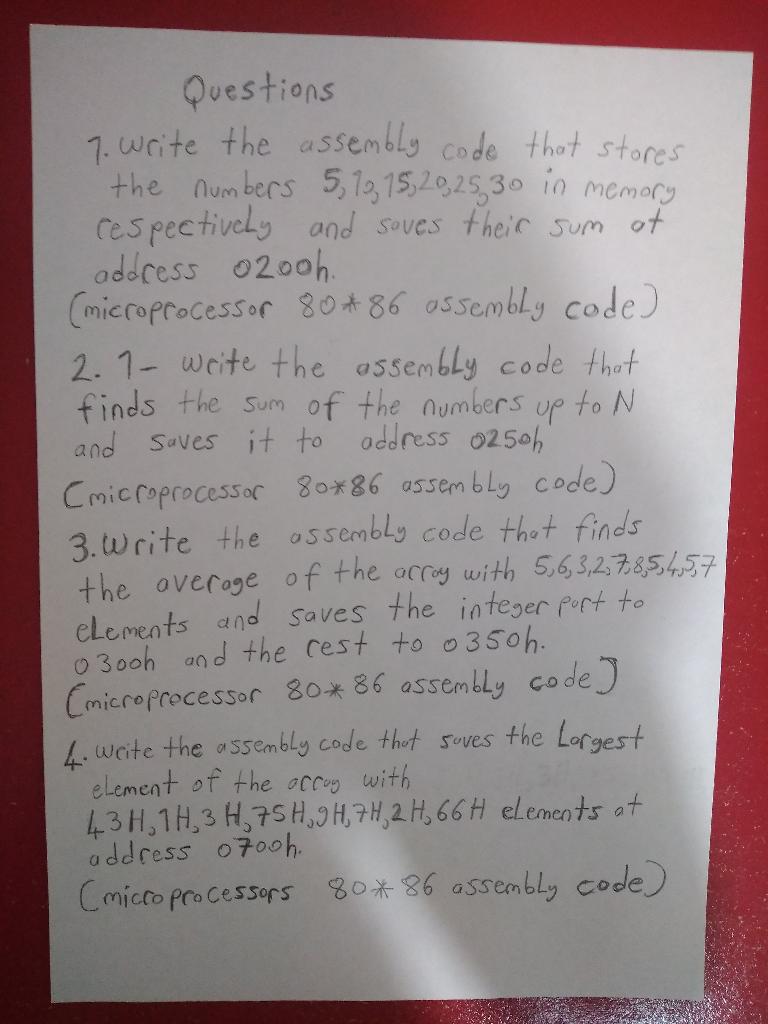 Questions
1. Write the assembly code that stores
the numbers 5,10,15,20,25,30 in memory
respectively and saves their sum at
address 0200h.
(microprocessor 80*86 assembly code)
2. 1- Write the assembly code that
finds the sum of the numbers up to N
and saves it to address 0250h
(microprocessor 80*86 assembly code)
3. Write the assembly code that finds
the average of the array with 5,6,3,2,7,8,5,4,5,7
elements and saves the integer part to
0300h and the rest to 0350h.
(microprocessor 80*86 assembly code)
4. Write the assembly code that saves the Largest
element of the array with
43H,1H,3H,75H,9H,7H,2H,66H elements at
address 0700h.
(microprocessors 80*86 assembly code)